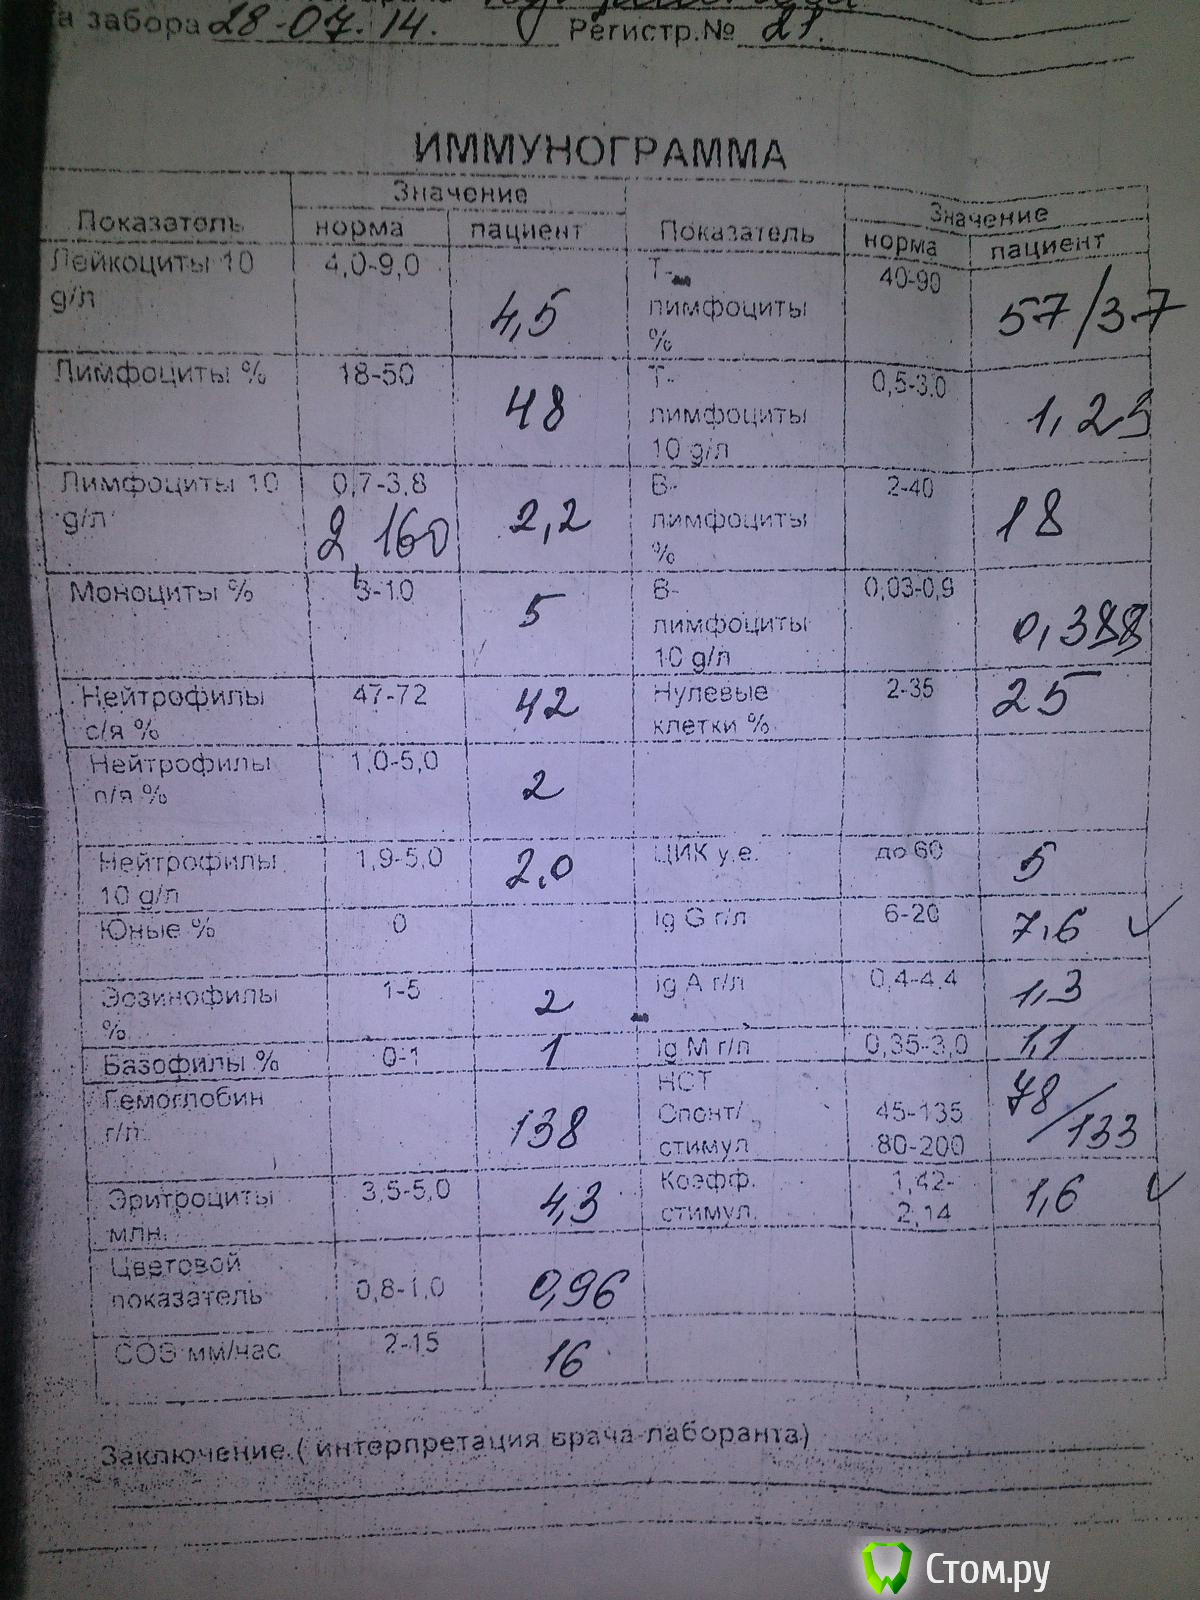 а забора 28-07.14. Регистр.№ 21.
ИММУНОГРАММА
Показатель Значение Показатель Значение
норма пациент норма пациент
Лейкоциты 10 g/л 4,0-9,0 4,5 Т-лимфоциты % 40-90 57/37
Лимфоциты % 18-50 48 Т-лимфоциты 10 g/л 0,5-3.0 1,23
Лимфоциты 10 g/л 0,7-3,8 2 160 2,2 В-лимфоциты % 2-40 18
Моноциты % 3-10 5 В-лимфоциты 10 g/л 0,03-0,9 0,388
Нейтрофилы с/я % 47-72 42 Нулевые клетки % 2-35 25
Нейтрофилы п/я % 1,0-5,0 2
Нейтрофилы 10 g/л 1,9-5,0 2,0 ЦИК у.е. до 60 5
Юные % 0 Ig G г/л 6-20 7,6 ✓
Эозинофилы % 1-5 2 Ig A г/л 0,4-4,4 1,3
Базофилы % 0-1 1 Ig M г/л 0,35-3,0 1,1
Гемоглобин г/л 138 НСТ Спонт/стимул 45-135 80-200 78/133
Эритроциты млн. 3,5-5,0 4,3 Коэфф. стимул. 1,42-2,14 1,6 ✓
Цветовой показатель 0,8-1,0 0,96
СОЭ мм/час 2-15 16
Заключение ( интерпретация врача-лаборанта)
Стом.ру